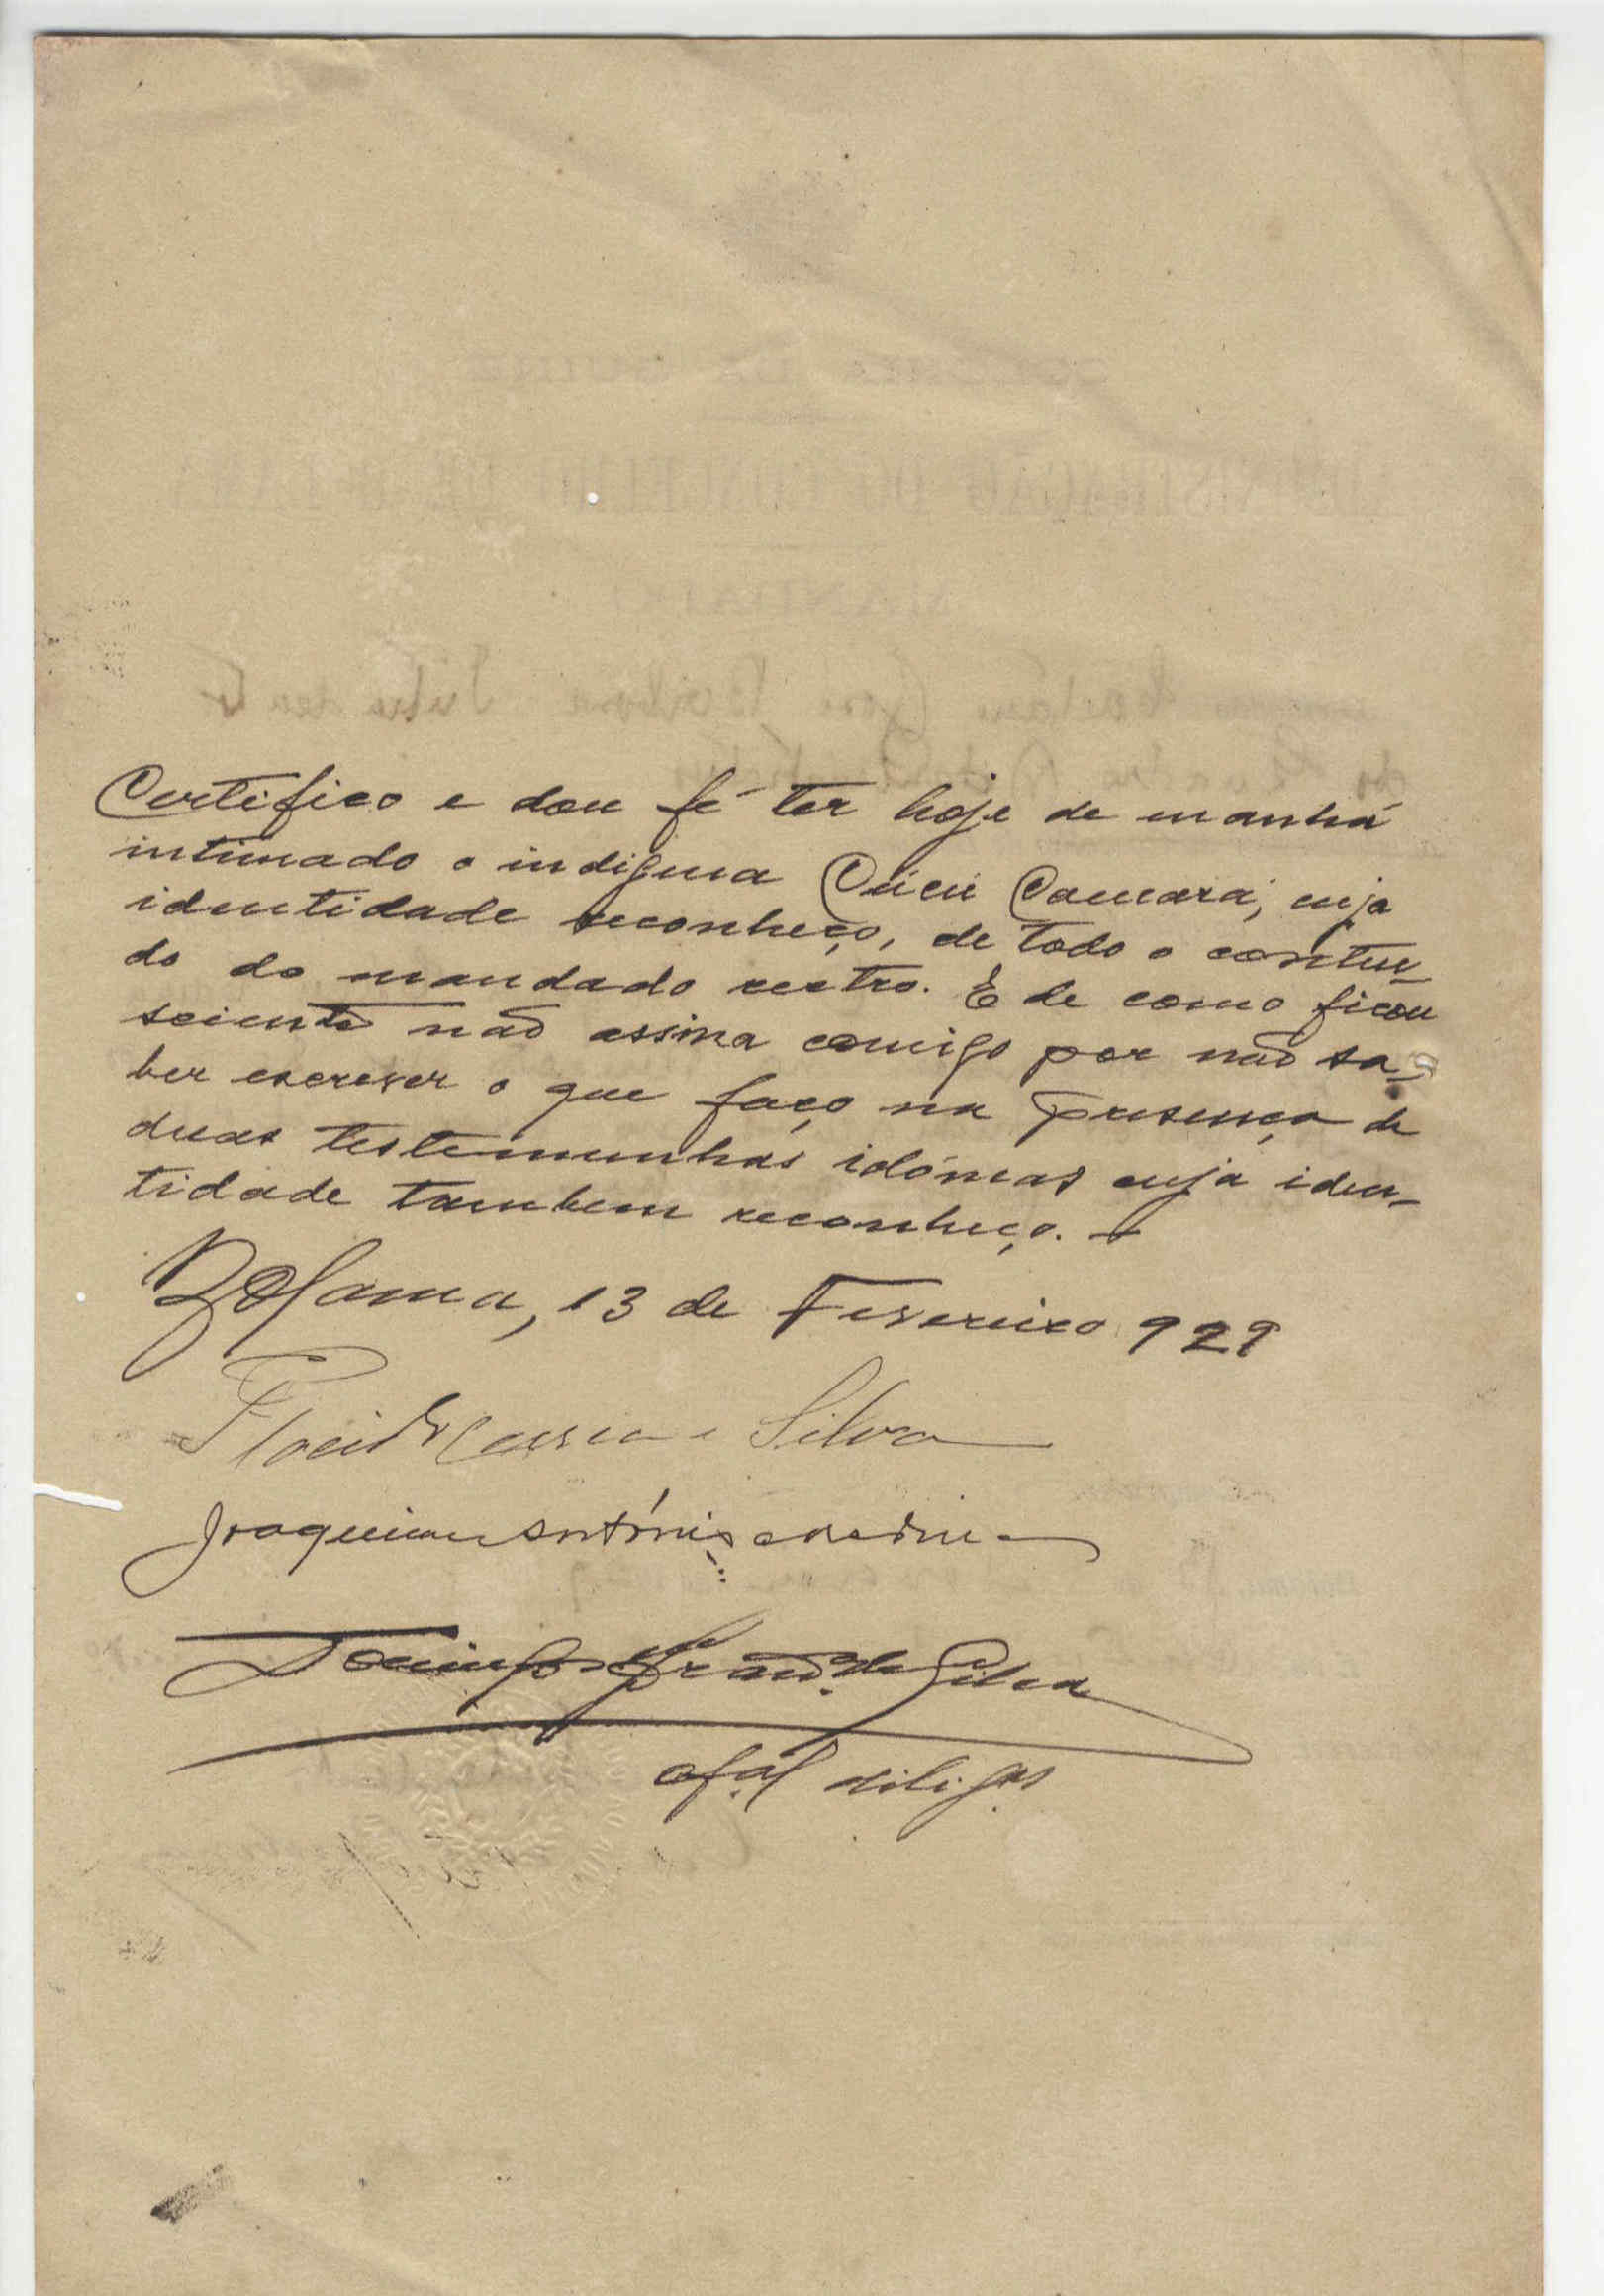 Certifico e dou fé ter hoje de manhã
intimado o indigena Cúcú Camará, cuja
identidade reconheço, de todo o conteu-
do do mandado retro. E de como ficou
sciente não assina comigo por não sa-
ber escrever o que faço na presença de
duas testemunhas idóneas cuja iden-
tidade tambem reconheço.
Bolama, 13 de Fevereiro 929
Silva
Joaquim António
Domingos da Silva
ofal diligas